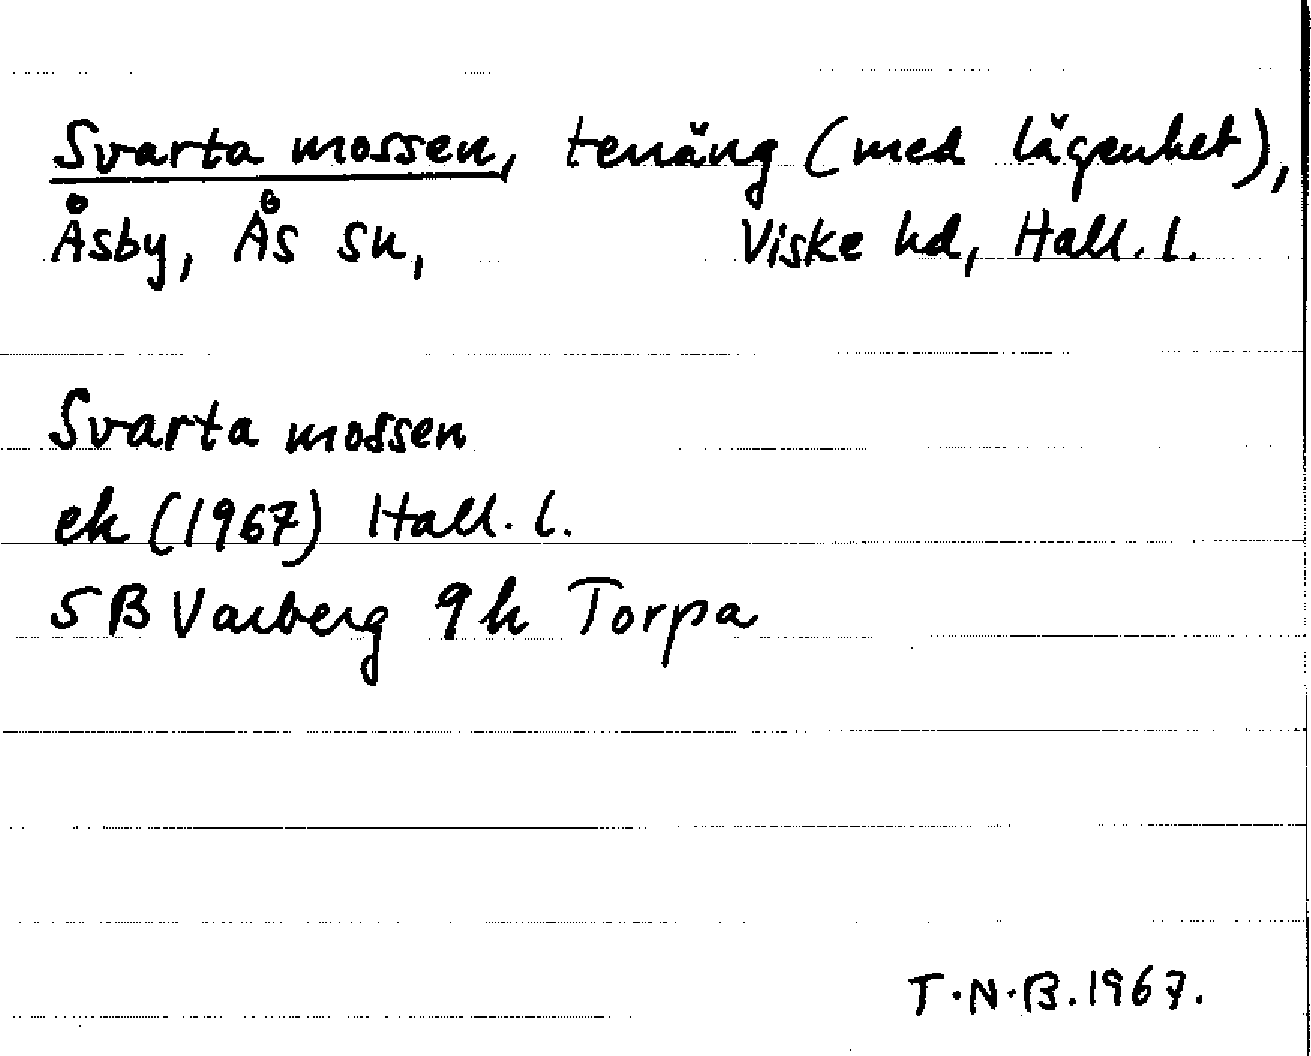 Svarta mossen, terräng (med lägenhet),
Åsby, Ås sn, Viske hd, Hall. l.
Svarta mossen
ek (1967) Hall. l.
5 B Varberg 9 h Torpa
T.N.B. 1967.